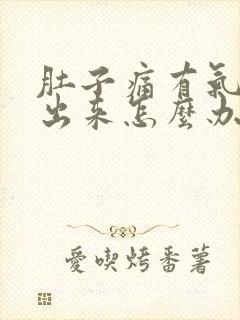 肚子痛有氣
出来怎麼办
愛喫烤番薯